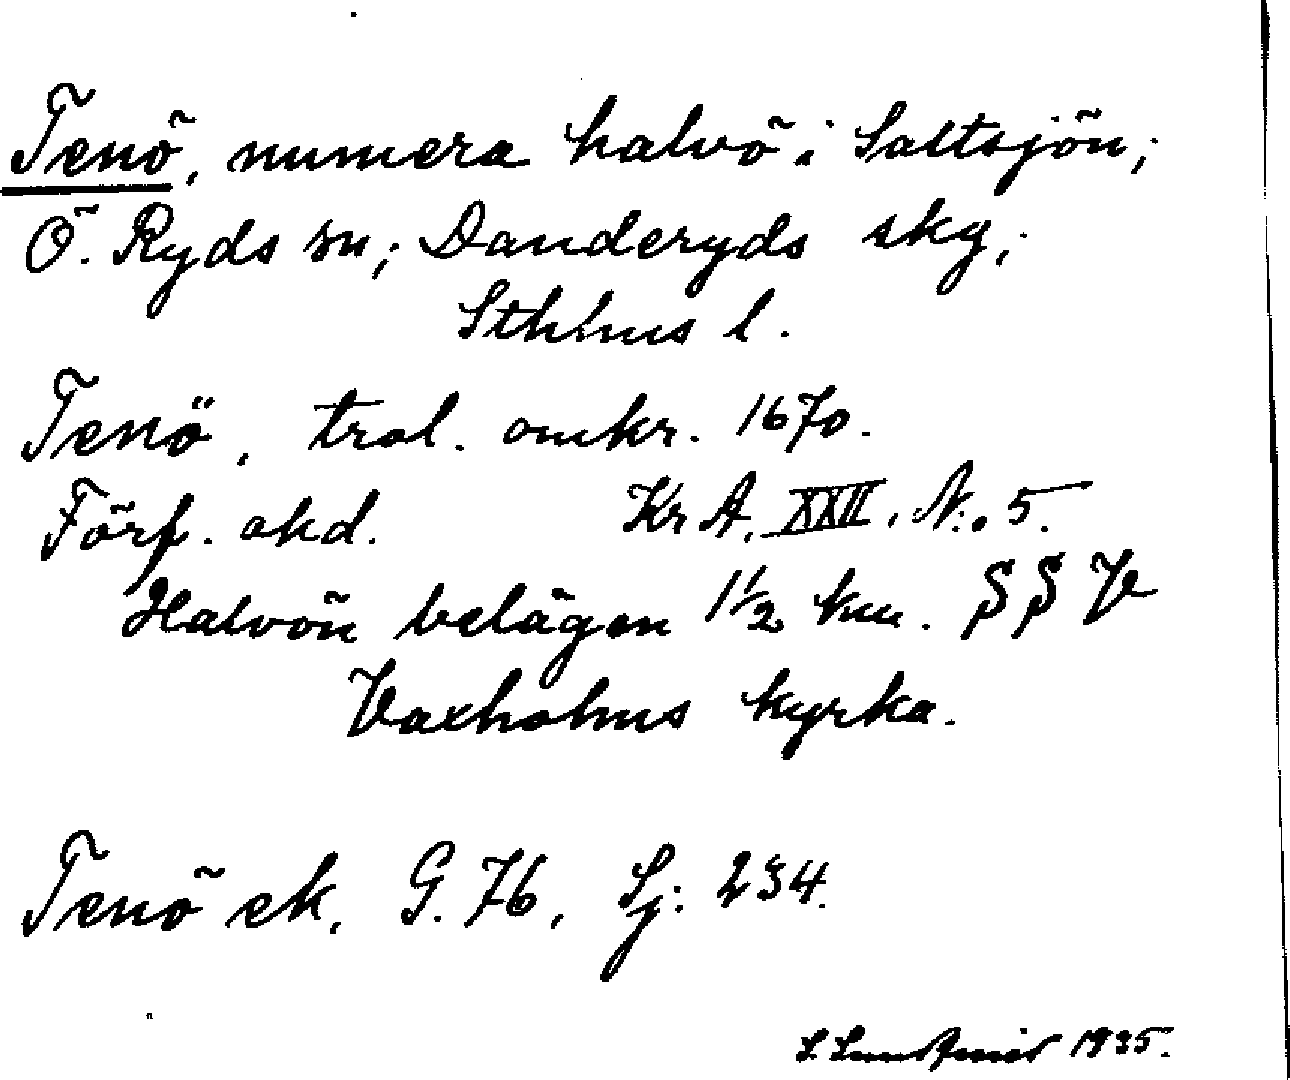 Tenö, numera halvö i Saltsjön;
Ö. Ryds sn; Danderyds skg;
Sthlms l.
Tenö, trol. omkr. 1670.
Förf. okd. Kr A, XXII, N:o 5.
Halvön belägen 1 1/2 km. S S V
Vaxholms kyrka.
Tenö ek. G. 76, Sj: 234.
S. 1935.